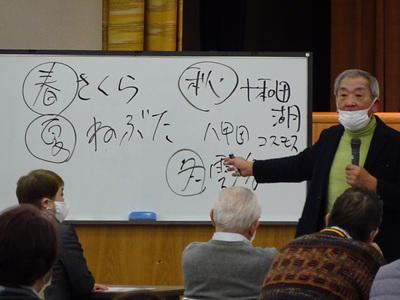 春 さくら
夏 ねぶた
秋 十和田
湖
八甲田 コスモス
冬 雪